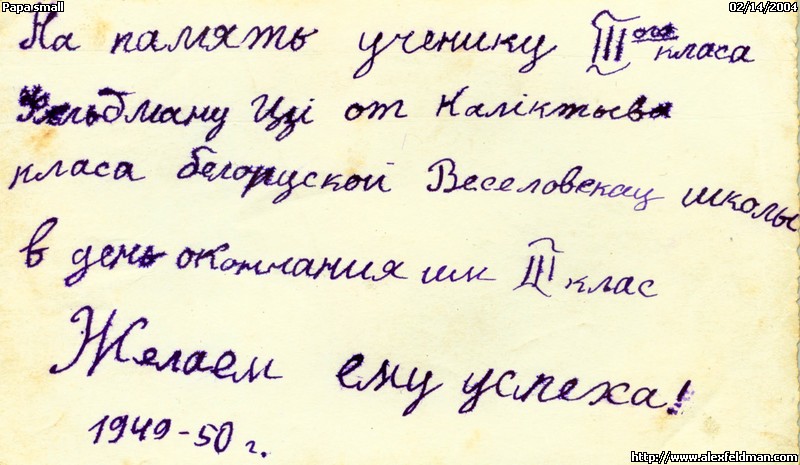 Papa small
02/14/2004
На память ученику III ого класа
Фельдману Цзі от Каліктыва
класа белоруской Веселовскац школы
в день окончания им III клас
Желаем ему успеха!
1949-50 г.
http://www.alexfeldman.com